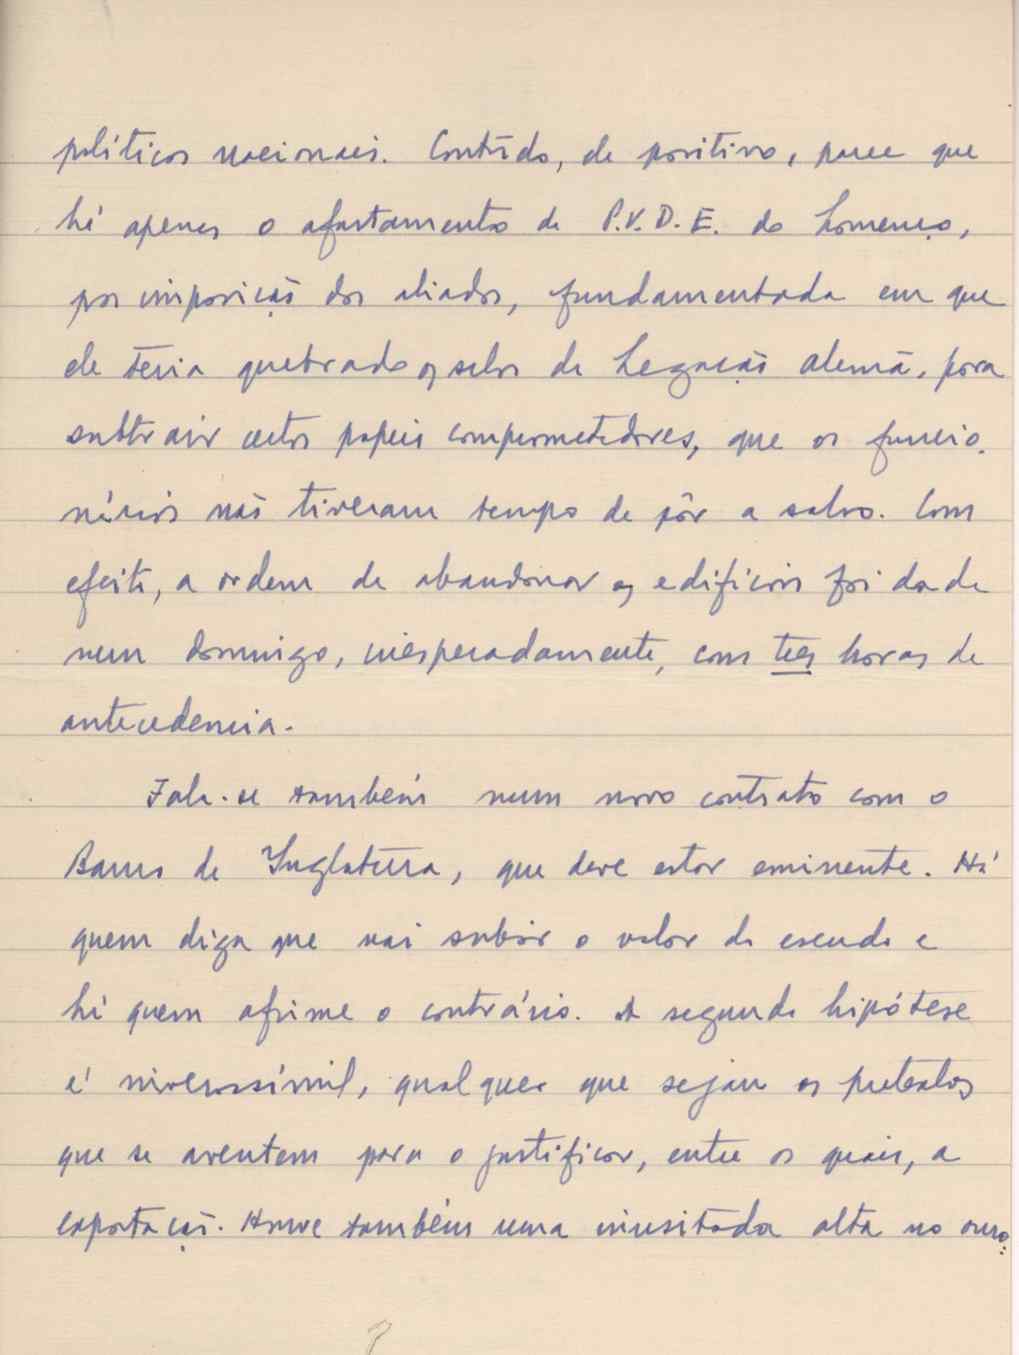 políticos nacionais. Contudo, de positivo, parece que
há apenas o afastamento da P.V.D.E. do Lourenço,
por imposição dos aliados, fundamentada em que
ele teria quebrado os selos da Legação alemã, para
subtrair certos papeis comprometedores, que os funcio-
nários não tiveram tempo de pôr a salvo. Com
efeito, a ordem de abandonar os edifícios foi dada
num domingo, inesperadamente, com tres horas de
antecedencia.
Fala-se também num novo contrato com o
Banco de Inglaterra, que deve estar eminente. Há
quem diga que vai subir o valor do escudo e
há quem afirme o contrário. A segunda hipótese
é inverosímil, qualquer que sejam os pretextos
que se aventem para o justificar, entre os quais, a
exportação. Houve também uma inusitada alta no ouro:
7